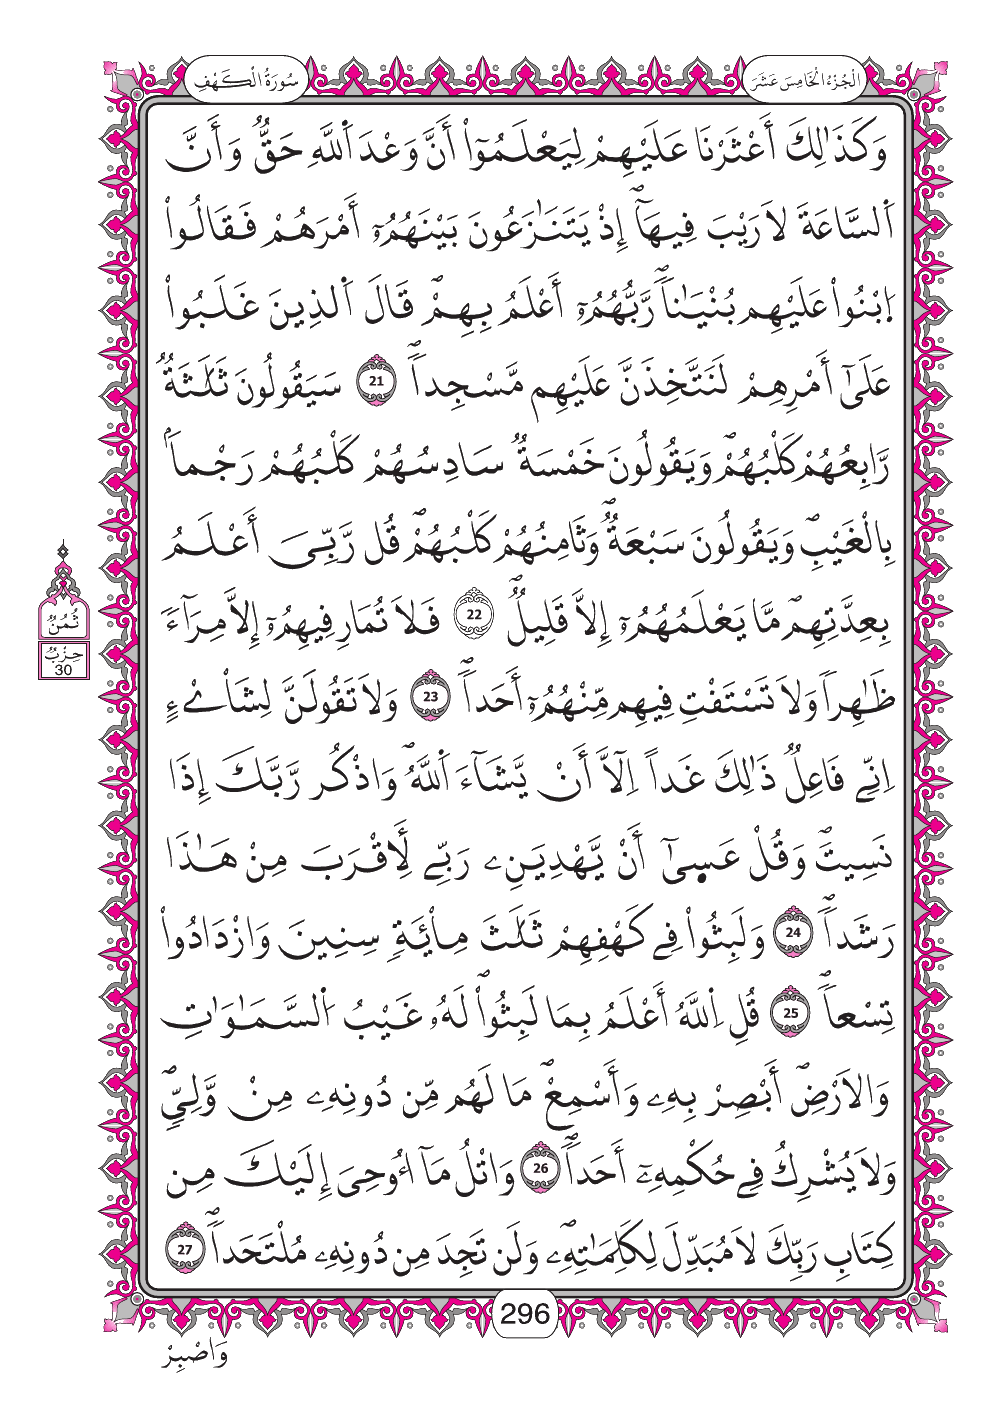 سُورَةُ الْكَهْفِ
الْجُزْءُ الْخَامِسَ عَشَرَ
وَكَذَٰلِكَ أَعْثَرْنَا عَلَيْهِمْ لِيَعْلَمُوٓاْ أَنَّ وَعْدَ اَللَّهِ حَقٌّ وَأَنَّ
اَلسَّاعَةَ لَا رَيْبَ فِيهَآ إِذْ يَتَنَٰزَعُونَ بَيْنَهُمُۥٓ أَمْرَهُمْ فَقَالُواْ
اِبْنُواْ عَلَيْهِم بُنْيَٰناً رَّبُّهُمُۥٓ أَعْلَمُ بِهِمْ قَالَ اَلذِينَ غَلَبُواْ
عَلَىٰٓ أَمْرِهِمْ لَنَتَّخِذَنَّ عَلَيْهِم مَّسْجِداً 21 سَيَقُولُونَ ثَلَٰثَةٌ
رَّابِعُهُمْ كَلْبُهُمْ وَيَقُولُونَ خَمْسَةٌ سَادِسُهُمْ كَلْبُهُمْ رَجْماً
بِالْغَيْبِ وَيَقُولُونَ سَبْعَةٌ وَثَامِنُهُمْ كَلْبُهُمْ قُل رَّبِّيَ أَعْلَمُ
بِعِدَّتِهِم مَّا يَعْلَمُهُمُۥٓ إِلَّا قَلِيلٌ 22 فَلَا تُمَارِ فِيهِمُۥٓ إِلَّا مِرَآءَ
ظَٰهِراً وَلَا تَسْتَفْتِ فِيهِم مِّنْهُمُۥٓ أَحَداً 23 وَلَا تَقُولَنَّ لِشَاْےْءٍ
اِنِّے فَاعِلٌ ذَٰلِكَ غَداً اِلَّآ أَنْ يَّشَآءَ اَللَّهُ وَاذْكُر رَّبَّكَ إِذَا
نَسِيتَ وَقُلْ عَسِىٰٓ أَنْ يَّهْدِيَنِۦ رَبِّے لِأَقْرَبَ مِنْ هَٰذَا
رَشَداً 24 وَلَبِثُواْ فِے كَهْفِهِمْ ثَلَٰثَ مِاْئَةٖ سِنِينَ وَازْدَادُواْ
تِسْعاً 25 قُلِ اِللَّهُ أَعْلَمُ بِمَا لَبِثُواْ لَهُۥ غَيْبُ اُلسَّمَٰوَٰتِ
وَالَارْضِ أَبْصِرْ بِهِۦ وَأَسْمِعْ مَا لَهُم مِّن دُونِهِۦ مِنْ وَّلِيٍّ
وَلَا يُشْرِكُ فِے حُكْمِهِۦٓ أَحَداً 26 وَاتْلُ مَآ أُوحِيَ إِلَيْكَ مِن
كِتَابِ رَبِّكَ لَا مُبَدِّلَ لِكَلِمَٰتِهِۦ وَلَن تَجِدَ مِن دُونِهِۦ مُلْتَحَداً 27
ثُمُنٌ
حِزْبٌ
30
296
وَاصْبِرْ